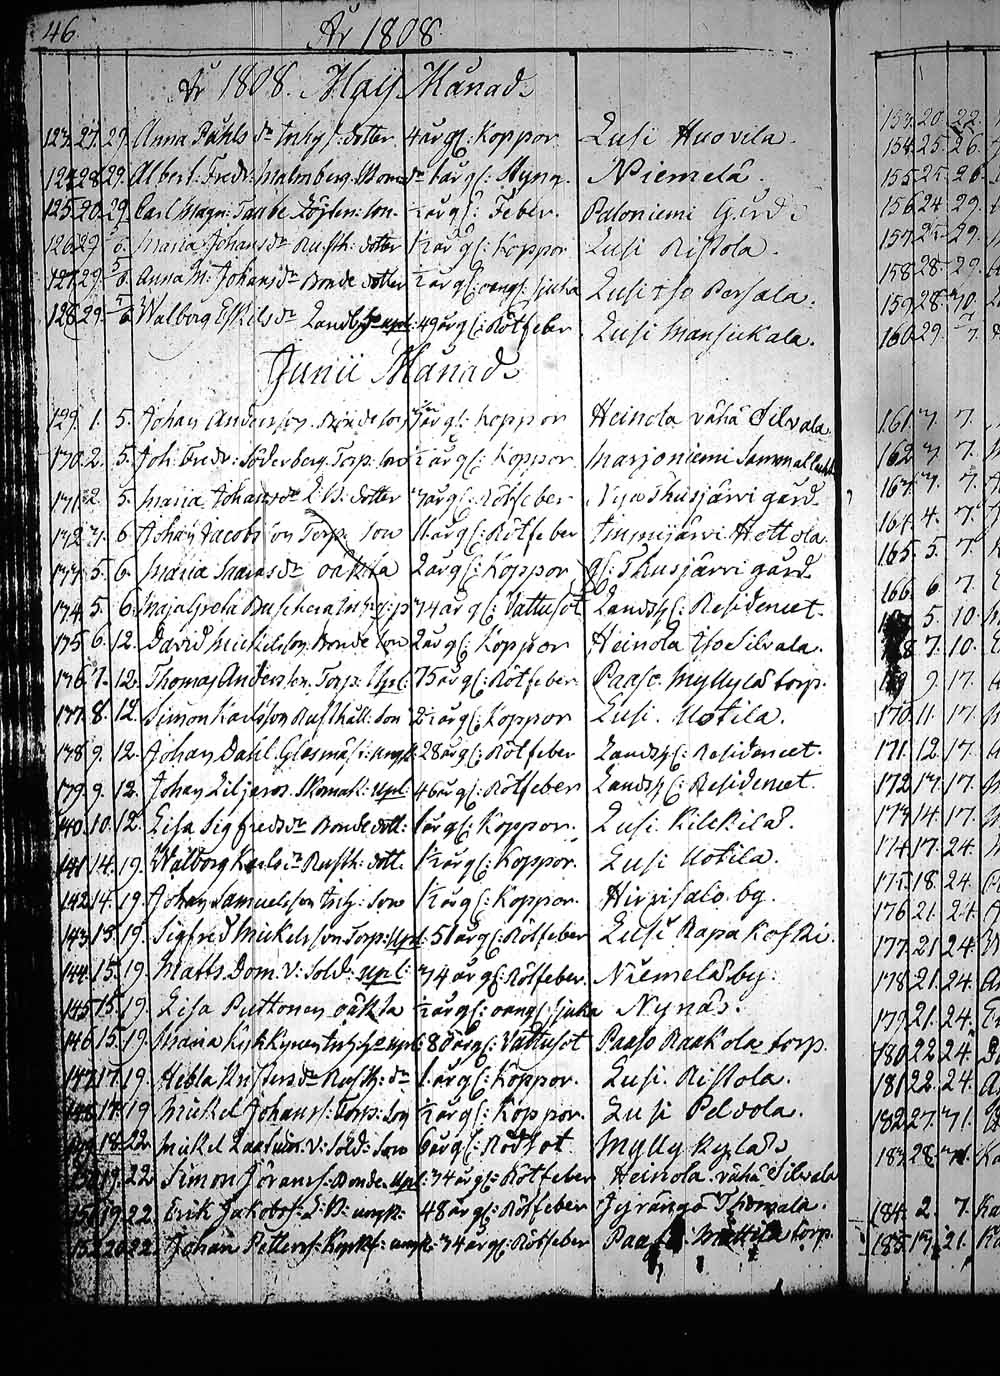 46. År 1808.
År 1808. Maij Månad.
123. 27. 29. Anna Påhls dr Inhys: dotter 4 år gl: Koppor Lusi Huovila.
124. 28. 29. Albert Fredr: Malmberg 1 år gl: Niemelä.
125. 20. 29. Carl Magn: Taube Löjtn: son. ½ år gl: Feber. Paloniemi Gård.
126. 27. 5/6. Maria Johans dr Rusth: dotter ½ år gl: Koppor Lusi Ristola.
127. 29. 5/6. Anna M: Johans dr Bonde dotter ½ år gl: oangl: sjuka Lusi Iso Persala.
128. 29. 5/6. Walborg Eskels dr 49 år gl: Rötfeber Lusi Mansickala.
Junii Månad.
129. 1. 5. Johan Andersson Bonde son år gl: Koppor Heinola vähä Silvala.
130. 2. 5. Joh: Fredr: Söderberg Torp: son ½ år gl: Koppor Marjoniemi
131. 2. 5. Maria Johans dr dotter 3 år gl: Rötfeber Thusjärvi gård.
132. 3. 6. Johan Jacobsson Torp: son 11 år gl: Rötfeber Imjärvi Hottola.
133. 5. 6. Maria dr oäkta 2 år gl: Koppor Thusjärvi gård.
134. 5. 6. Maja Greta 74 år gl: Vattusot Landsh: Residencet.
135. 6. 12. David Mickelsson Bonde son 2 år gl: Koppor Heinola Iso Silvala.
136. 7. 12. Thomas Andersson Torp: 75 år gl: Rötfeber Paaso. Myllylä torp.
137. 8. 12. Simon Karlsson Rusthåll: son 2½ år gl: Koppor Lusi. Uotila.
138. 9. 12. Johan Dahl Glasmäst: 28 år gl: Rötfeber Landsh: Residencet.
139. 9. 12. Johan Liljeros Skomak: 46 år gl: Rötfeber Landsh: Residencet.
140. 10. 12. Lisa Sigfreds dr Bonde dott: 1 år gl: Koppor. Lusi Kilkilä.
141. 14. 19. Walborg Karls dr Rusth: dott. ½ år gl: Koppor. Lusi Uotila.
142. 14. 19. Johan Samuelsson Inhy: son ½ år gl: Koppor. Hirvisalo by.
143. 15. 19. Sigfred Mickelsson Torp: 51 år gl: Rötfeber Lusi Rapakoski.
144. 15. 19. Matts Dom v: Sold: 74 år gl: Rötfeber. Niemelä by:
145. 15. 19. Lisa Puttonen oäkta ½ år gl: oangl: sjuka Nynäs.
146. 15. 19. Maria Kykkynen 80 år gl: Vattusot Paaso Raakola torp.
147. 17. 19. Hebla Rusth: dr 1 år gl: Koppor. Lusi. Ristola.
148. 17. 19. Mickel Johans: Torp: son ½ år gl: Koppor. Lusi Peltola.
149. 18. 22. Mickel v: Sold: son 6 år gl: Rödsot Myllykylä.
150. 19. 22. Simon Jörans: Bonde 74 år gl: Rötfeber Heinola vähä Silvala
151. 19. 22. Erik Jakobs: 48 år gl: Rötfeber Jyrängö Thomala.
152. 20. 22. Johan Petters: 34 år gl: Rötfeber Paaso Mattila torp.
153. 20. 22.
154. 25. 26.
155. 25. 26.
156. 24. 29.
157. 25. 29.
158. 28. 29.
159. 28.
160. 29.
161. 3. 7.
162. 3. 7.
163. 3. 7.
164. 4. 7.
165. 5. 7.
166. 6. 7.
5. 10.
7. 10.
9. 17.
170. 11. 17.
171. 12. 17.
172. 13. 17.
173. 14. 17.
174. 17. 24.
175. 18. 24.
176. 21. 24.
177. 21. 24.
178. 21. 24.
179. 21. 24.
180. 22. 24.
181. 22. 24.
182. 27. 31.
183. 28. 31.
184. 2. 7.
185. 13. 21.